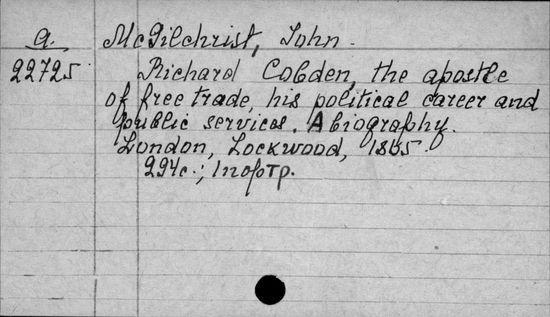 a. McGilchrist, John.
22725 Richard Cobden, the apostle
of free trade, his political career and
public services. A biography.
London, Lockwood, 1865.
294c.; 1 портр.